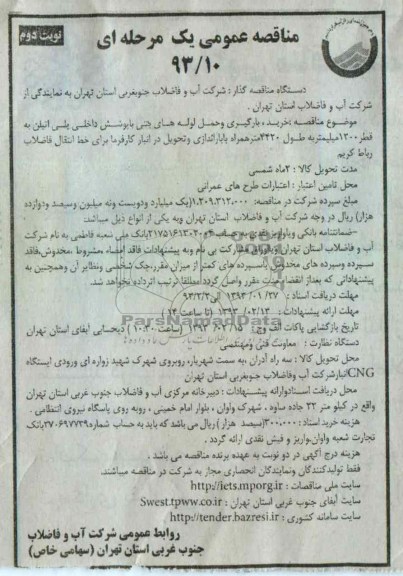 نوبت دوم
مناقصه عمومی یک مرحله ای
۹۳/۱۰
دستگاه مناقصه گذار: شرکت آب و فاضلاب جنوبغربی استان تهران به نمایندگی از
شرکت آب و فاضلاب استان تهران.
موضوع مناقصه: خرید، بارگیری وحمل لوله های بتنی باپوشش داخلی پلی اتیلن به
قطر ۱۲۰۰میلیمتربه طول ۴۴۲۰مترهمراه باباراندازی وتحویل در انبار کارفرما برای خط انتقال فاضلاب
رباط کریم
مدت تحویل کالا: ۲ماه شمسی
محل تامین اعتبار: اعتبارات طرح های عمرانی
مبلغ سپرده شرکت در مناقصه: ۱,۲۰۹,۳۱۲,۰۰۰(یک میلیارد ودویست ونه میلیون وسیصد ودوازده
هزار) ریال در وجه شرکت آب و فاضلاب استان تهران وبه یکی از انواع ذیل میباشد:
-ضمانتنامه بانکی ویاواریز نقدی به حساب بانک ملی شعبه فاطمی به نام شرکت
آب و فاضلاب استان تهران وبرای مشارکت بی نام وبه پیشنهادات فاقد امضاء، مشروط، مخدوش،فاقد
سپرده وسپرده های مخدوش یاسپرده های کمتر از میزان مقرر،چک شخصی ونظایر آن وهمچنین به
پیشنهاداتی که بعداز انقضاء مدت مقرر واصل گردد مطلقا ترتیب اثرداده نخواهد شد.
مهلت دریافت اسناد: ۱۳۹۳/۰۱/۲۷ الی ۹۳/۲/۲
مهلت ارائه پیشنهادات: ۱۳۹۳/۰۲/۱۳ (تا ساعت ۱۴)
تاریخ بازگشایی پاکات (ساعت ۱۰:۳۰) درمحل آبفای استان تهران
دستگاه نظارت: معاونت فنی ومهندسی
محل تحویل کالا: سه راه آدران ،به سمت شهریار، روبروی شهرک شهید زواره ای ورودی ایستگاه
CNGانبارشرکت آب وفاضلاب جنوبغربی استان تهران
محل دریافت اسنادوارائه پیشنهادات: دبیرخانه مرکزی آب و فاضلاب جنوب غربی استان تهران
واقع در کیلو متر ۲۲ جاده ساوه، شهرک واوان، بلوار امام خمینی، روبه روی پاسگاه نیروی انتظامی.
هزینه خرید اسناد: ۳۰۰,۰۰۰(سیصد هزار) ریال می باشد که باید به حساب شماره۳۷۰۶۹۷۷۳۹بانک
تجارت شعبه واوان،واریز و فیش نقدی ارائه گردد.
هزینه درج آگهی در دو نوبت به عهده برنده مناقصه می باشد.
فقط تولیدکنندگان ونمایندگان انحصاری مجاز به شرکت در مناقصه میباشند.
سایت ملی مناقصات: http://iets.mporg.ir
سایت آبفای جنوب غربی استان تهران: Swest.tpww.co.ir
سایت سامانه کشوری: http://tender.bazresi.ir
روابط عمومی شرکت آب و فاضلاب
جنوب غربی استان تهران (سهامی خاص)